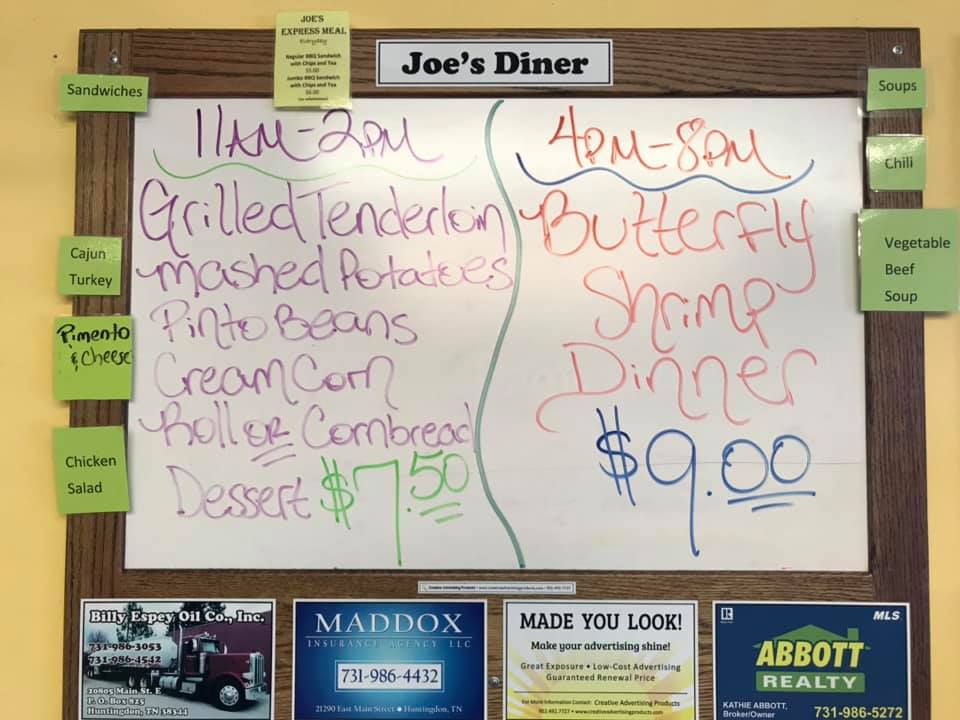 JOE'S
EXPRESS MEAL
Everyday
Regular BBQ Sandwich
with Chips and Tea
$5.00
Jumbo BBQ Sandwich
with Chips and Tea
$6.00
Joe's Diner
Sandwiches
Cajun
Turkey
Pimento
& Cheese
Chicken
Salad
11AM-2PM
Grilled Tenderloin
Mashed Potatoes
Pinto Beans
Cream Corn
Roll or Cornbread
Dessert $7.50
4PM-8PM
Butterfly
Shrimp
Dinner
$9.00
Soups
Chili
Vegetable
Beef
Soup
Billy Espey Oil Co., Inc.
731-986-3053
731-986-4542
20805 Main St. E
P. O. Box 825
Huntingdon, TN 38344
MADDOX
INSURANCE AGENCY LLC
731-986-4432
21290 East Main Street • Huntingdon, TN
MADE YOU LOOK!
Make your advertising shine!
Great Exposure • Low-Cost Advertising
Guaranteed Renewal Price
For More Information Contact: Creative Advertising Products
902.492.7727 • www.creativeadvertisingproducts.com
R
MLS
ABBOTT
REALTY
KATHIE ABBOTT,
Broker/Owner
731-986-5272